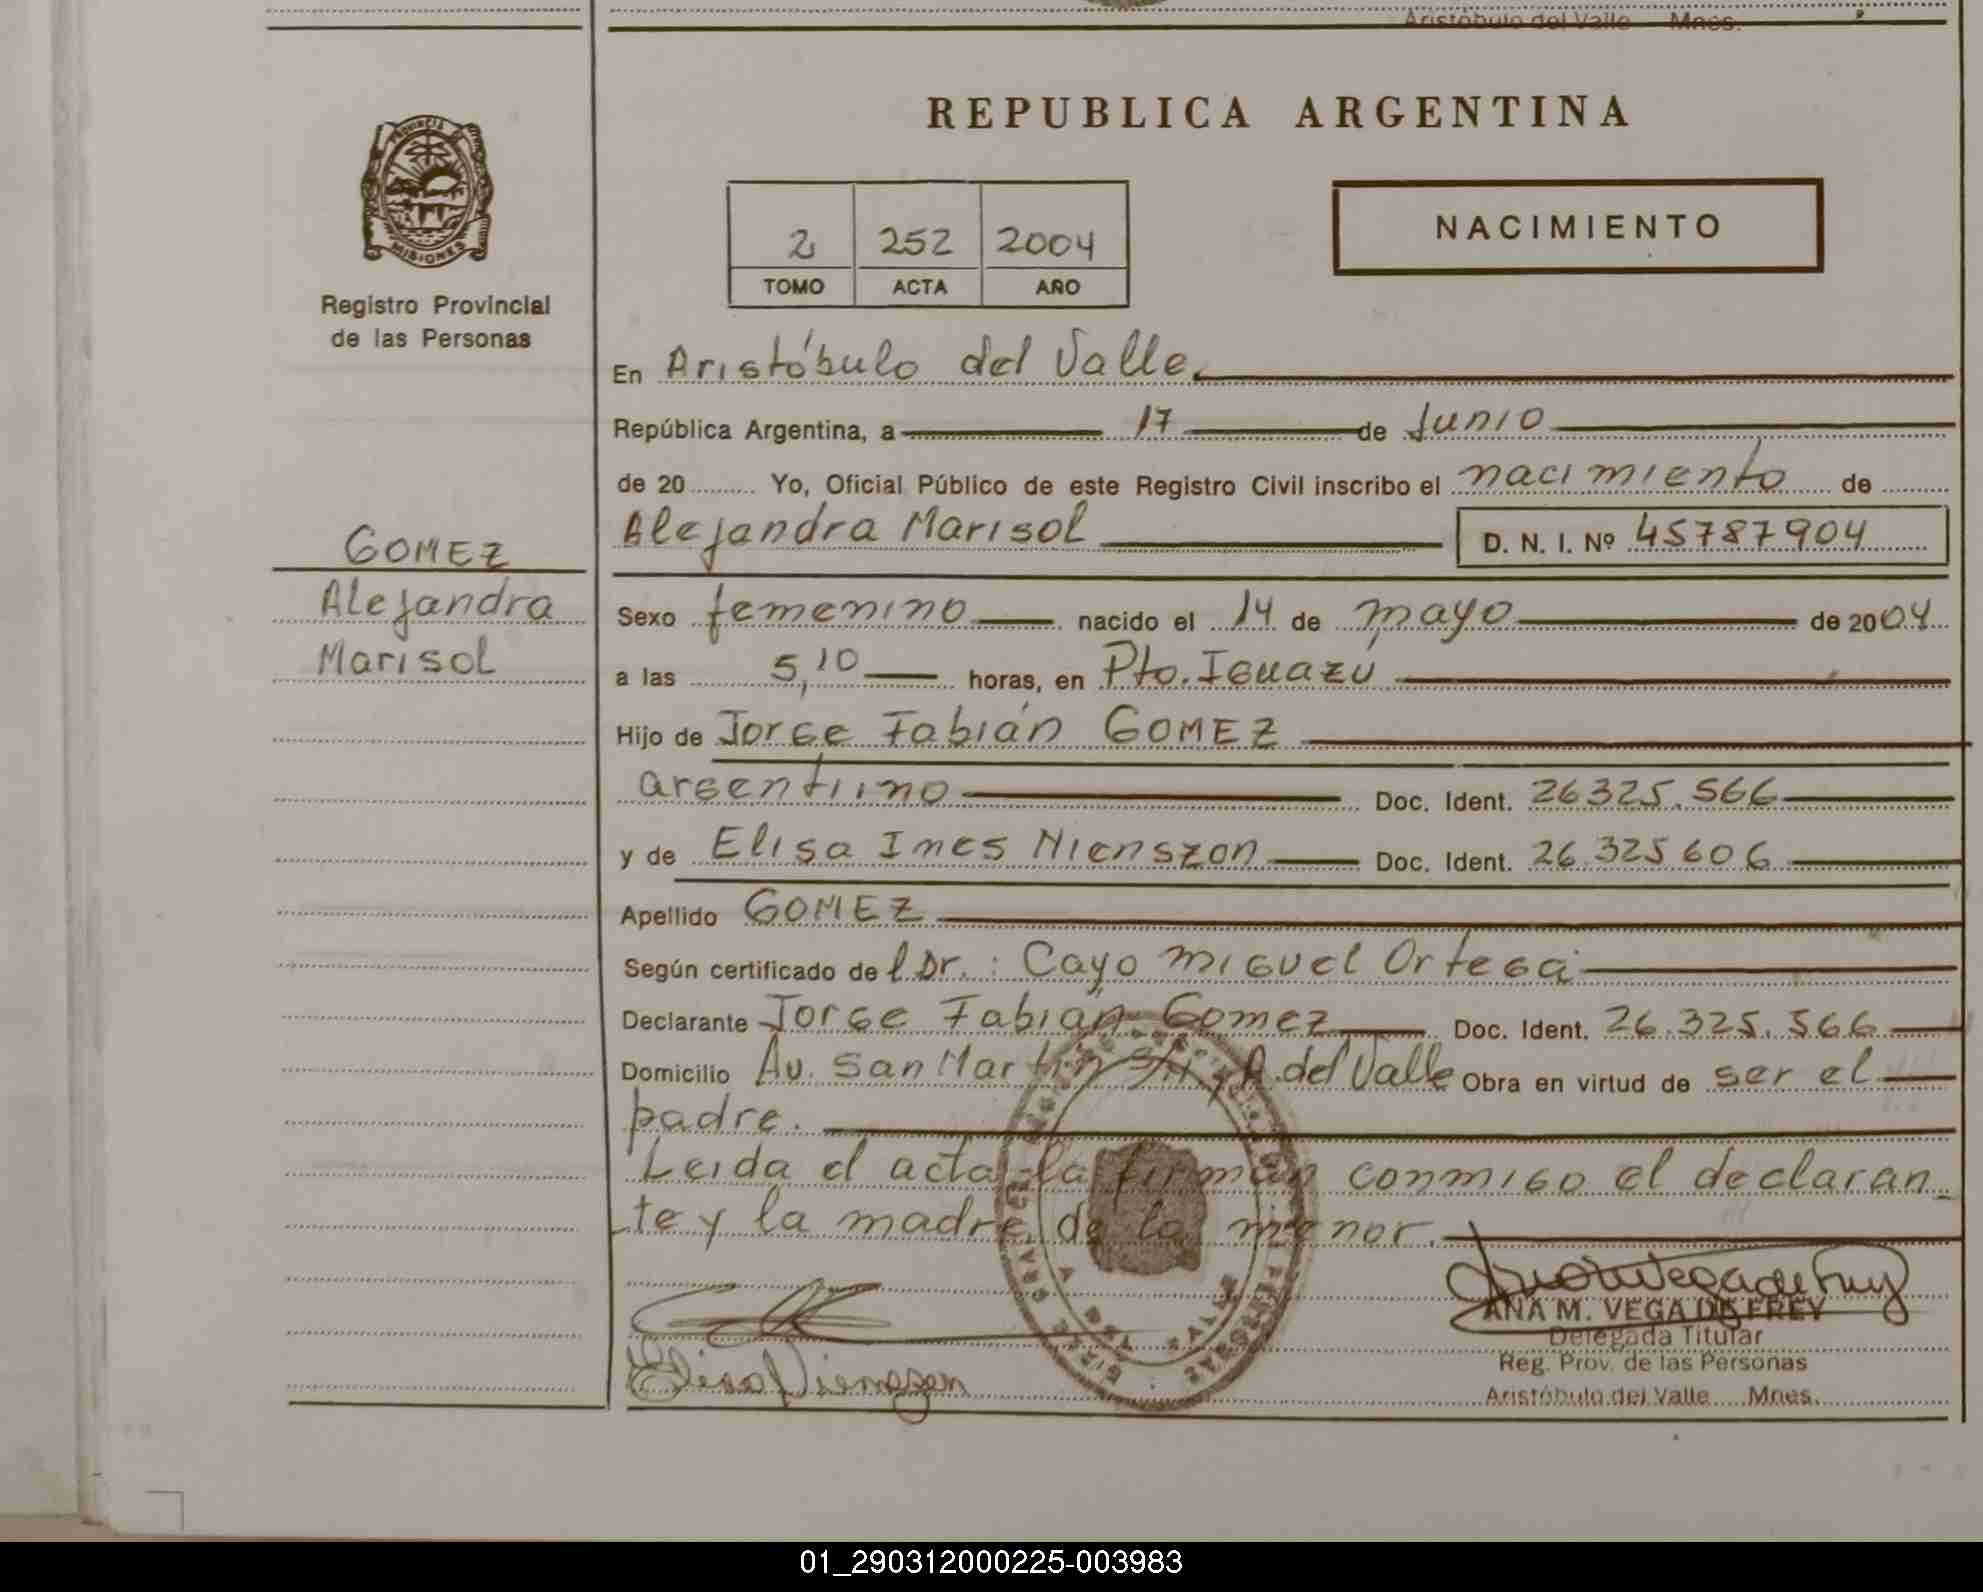 Aristóbulo del Valle Mnes.
REPUBLICA ARGENTINA
PROVINCIA
MISIONES
Registro Provincial
de las Personas
2 252 2004
TOMO ACTA AÑO
NACIMIENTO
En Aristóbulo del Valle.
República Argentina, a 17 de Junio
de 20 ......... Yo, Oficial Público de este Registro Civil inscribo el nacimiento de
Alejandra Marisol D. N. I. Nº 45787904
GOMEZ
Alejandra
Marisol
Sexo femenino nacido el 14 de mayo de 2004
a las 5,10 horas, en Pto. Iguazú
Hijo de Jorge Fabián GOMEZ
argentiino Doc. Ident. 26325.566
y de Elisa Ines Nienszon Doc. Ident. 26.325606
Apellido GOMEZ
Según certificado del Dr.: Cayo Miguel Ortega
Declarante Jorge Fabián Gomez Doc. Ident. 26.325.566
Domicilio Av. San Martin S/N, A. del Valle Obra en virtud de ser el
padre.
Leida el acta la firman conmigo el declaran-
te y la madre de la menor.
Elisa Nienszon
ANA M. VEGA DE FREY
Delegada Titular
Reg. Prov. de las Personas
Aristóbulo del Valle Mnes.
01_290312000225-003983